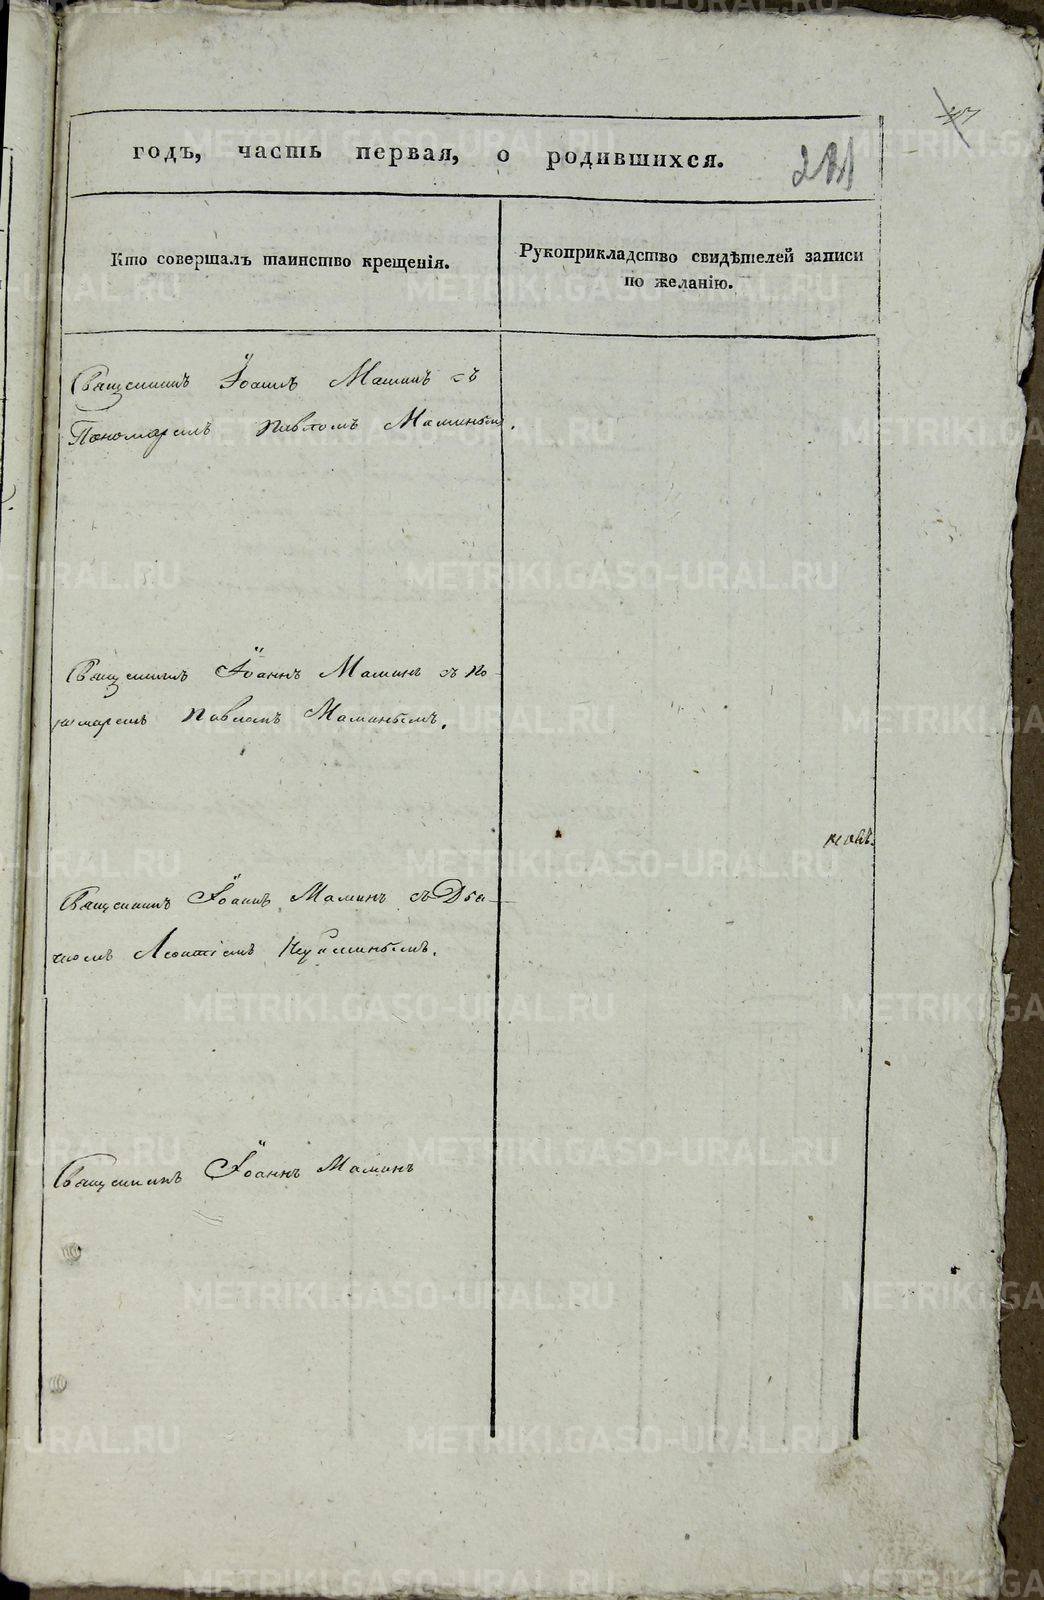 годъ, часть первая, о родившихся.
Кто совершалъ таинство крещенія.
Рукоприкладство свидѣтелей записи
по желанію.
Священникъ Іоаннъ Маминъ съ
Пономаремъ Павломъ Маминымъ.
Священникъ Іоаннъ Маминъ съ По
номаремъ Павломъ Маминымъ.
Священникъ Іоаннъ Маминъ съ Дья-
чкомъ Леонтіемъ
Священникъ Іоаннъ Маминъ
METRIKI.GASO-URAL.RU